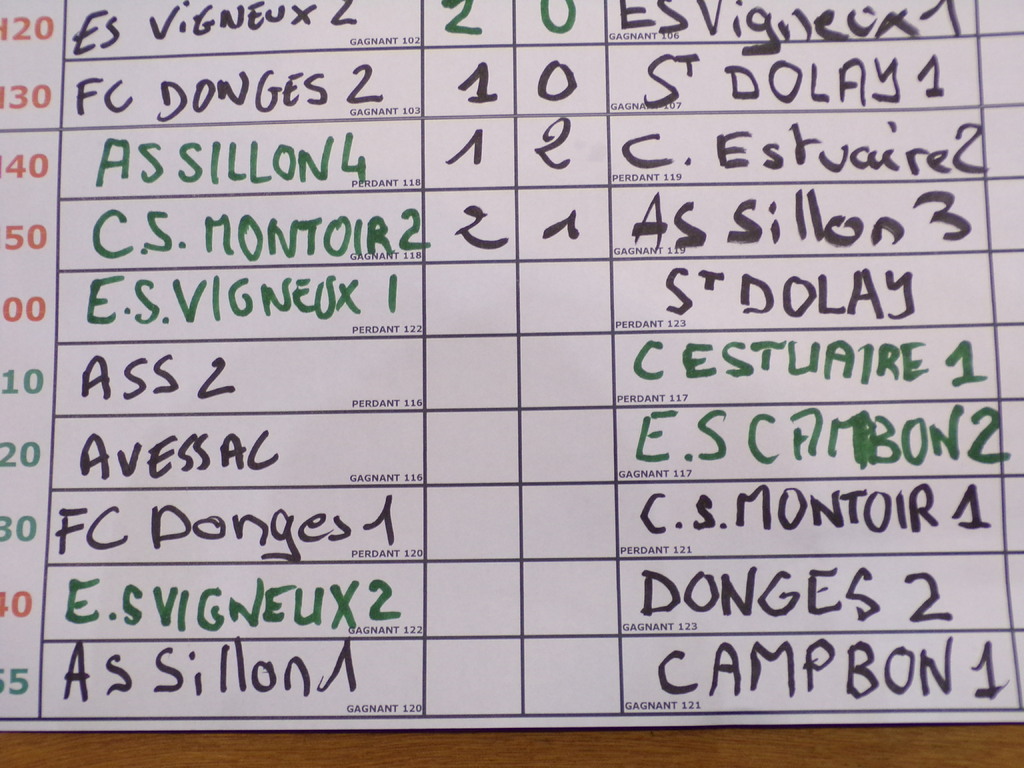 H20 ES VIGNEUX 2 GAGNANT 102 2 0 ES Vigneux 1 GAGNANT 106
H30 FC DONGES 2 GAGNANT 103 1 0 ST DOLAY 1 GAGNANT 107
H40 AS SILLON 4 PERDANT 118 1 2 C. Estuaire 2 PERDANT 119
50 C.S. MONTOIR 2 GAGNANT 118 2 1 AS Sillon 3 GAGNANT 119
00 E.S. VIGNEUX 1 PERDANT 122 ST DOLAY PERDANT 123
10 ASS 2 PERDANT 116 C ESTUAIRE 1 PERDANT 117
20 AVESSAC GAGNANT 116 E.S CAMBON 2 GAGNANT 117
30 FC Donges 1 PERDANT 120 C.S. MONTOIR 1 PERDANT 121
40 E.S VIGNEUX 2 GAGNANT 122 DONGES 2 GAGNANT 123
55 AS Sillon 1 GAGNANT 120 CAMPBON 1 GAGNANT 121